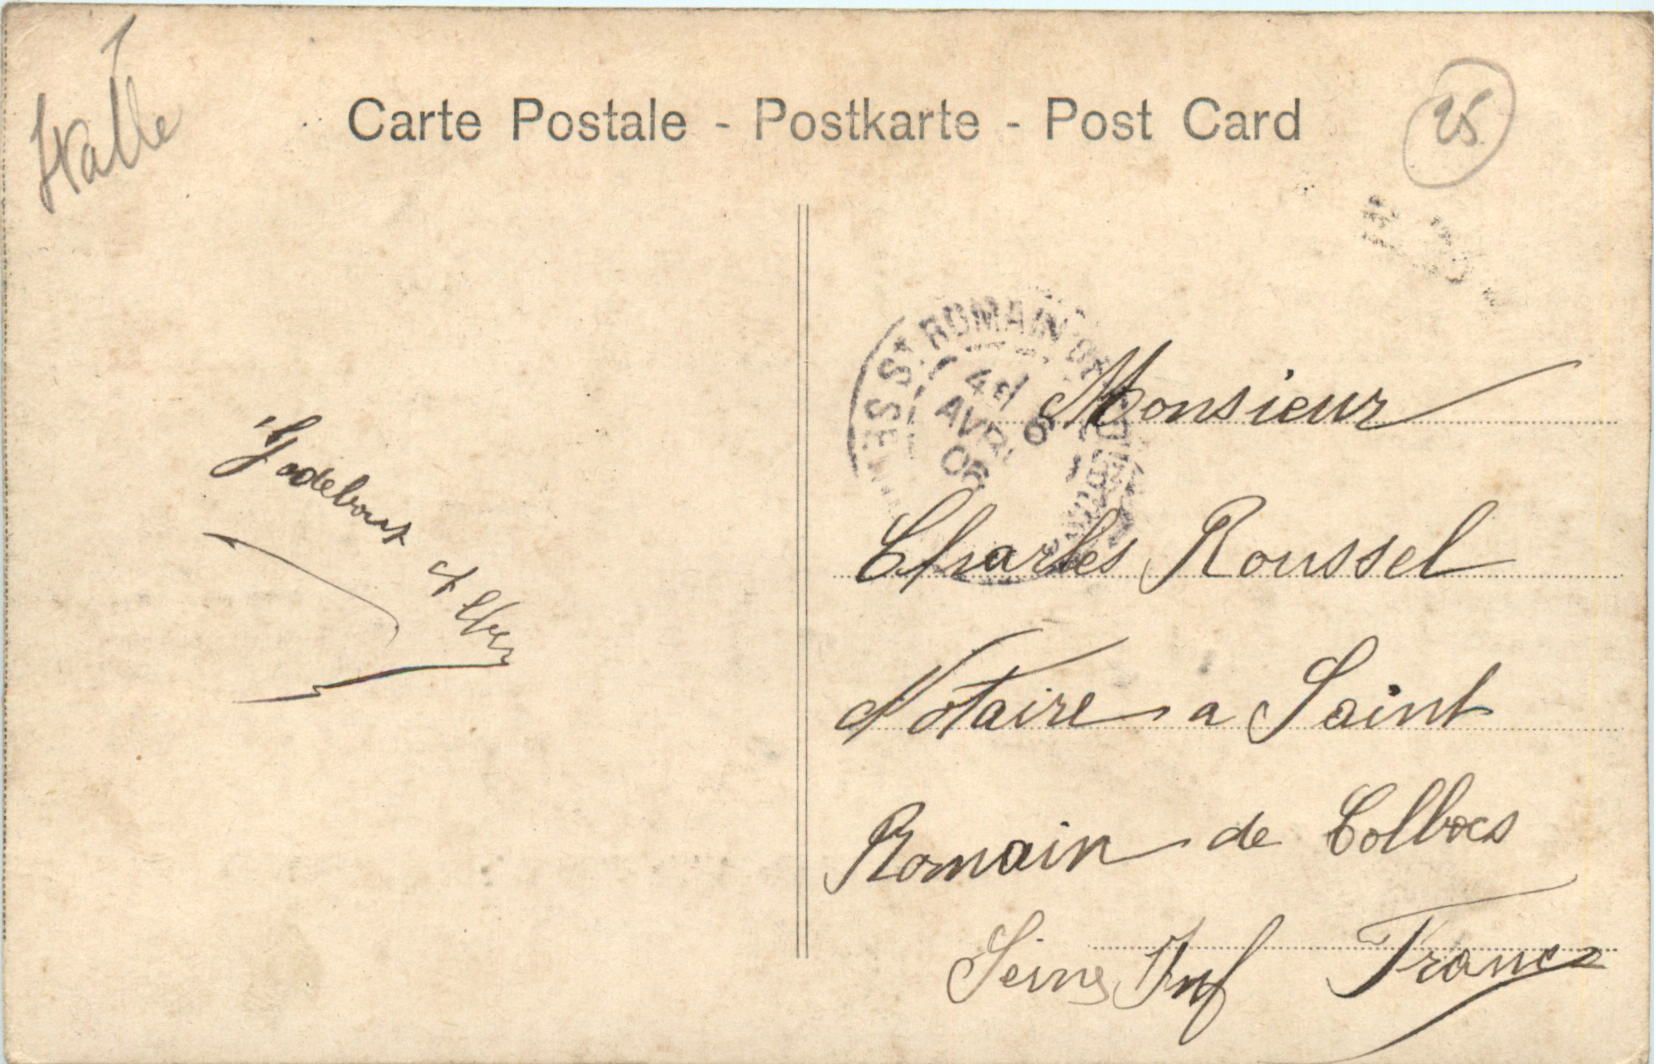 Italie
Carte Postale - Postkarte - Post Card
25
ST ROMAIN DE
4E
AVRIL
6
06
Monsieur
Charles Roussel
Notaire a Saint
Romain de Colbocs
Seine Inf France
Godebout Albert